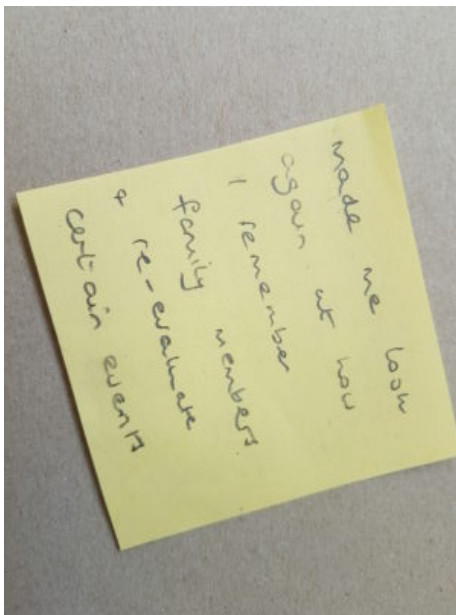 made me look
again at how
I remember
family members
& re-evaluate
certain events